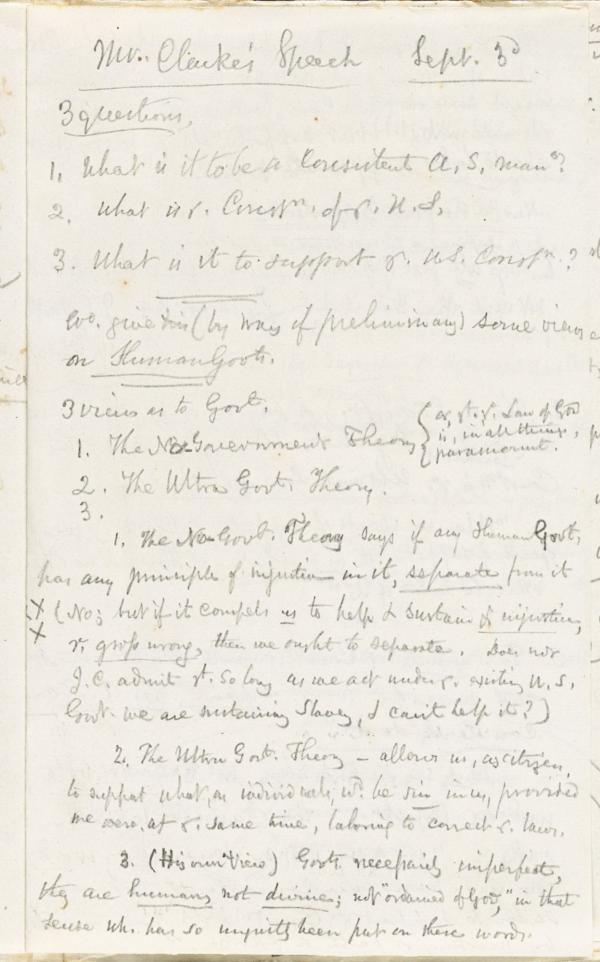 Mr. Clarke's Speech Sept. 3d
3 questions.
1. What is it to be a Consistent A. S. man?
2. What is ye. Constn. of ye. U. S.
3. What is it to support ye. U.S. Constn.?
give this (by way of preliminary) some views
on Human Govts.
3 views as to Govt.
1. The No-Government Theory { or, yt. ye. Law of God
is, in all things,
paramount.
2. The Ultra Govt. Theory.
3.
1. The No-Govt. Theory says if any Human Govt.
has any principle of injustice in it, separate from it
X (No; but if it compels us to help & sustain injustice,
X gross wrong, then we ought to separate. Does not
J. C. admit yt. so long as we act under ye. existing U. S.
Govt. we are sustaining Slavery, & can't help it?)
2. The Ultra Govt. Theory – allows us, as citizens,
to support what, as individuals, wd. be sin in us, provided
we were, at ye. same time, laboring to correct ye. laws.
3. (His own View) Govts. necessarily imperfect,
they are human, not divine; not "ordained of God," in that
sense wh. has so unjustly been put on these words.